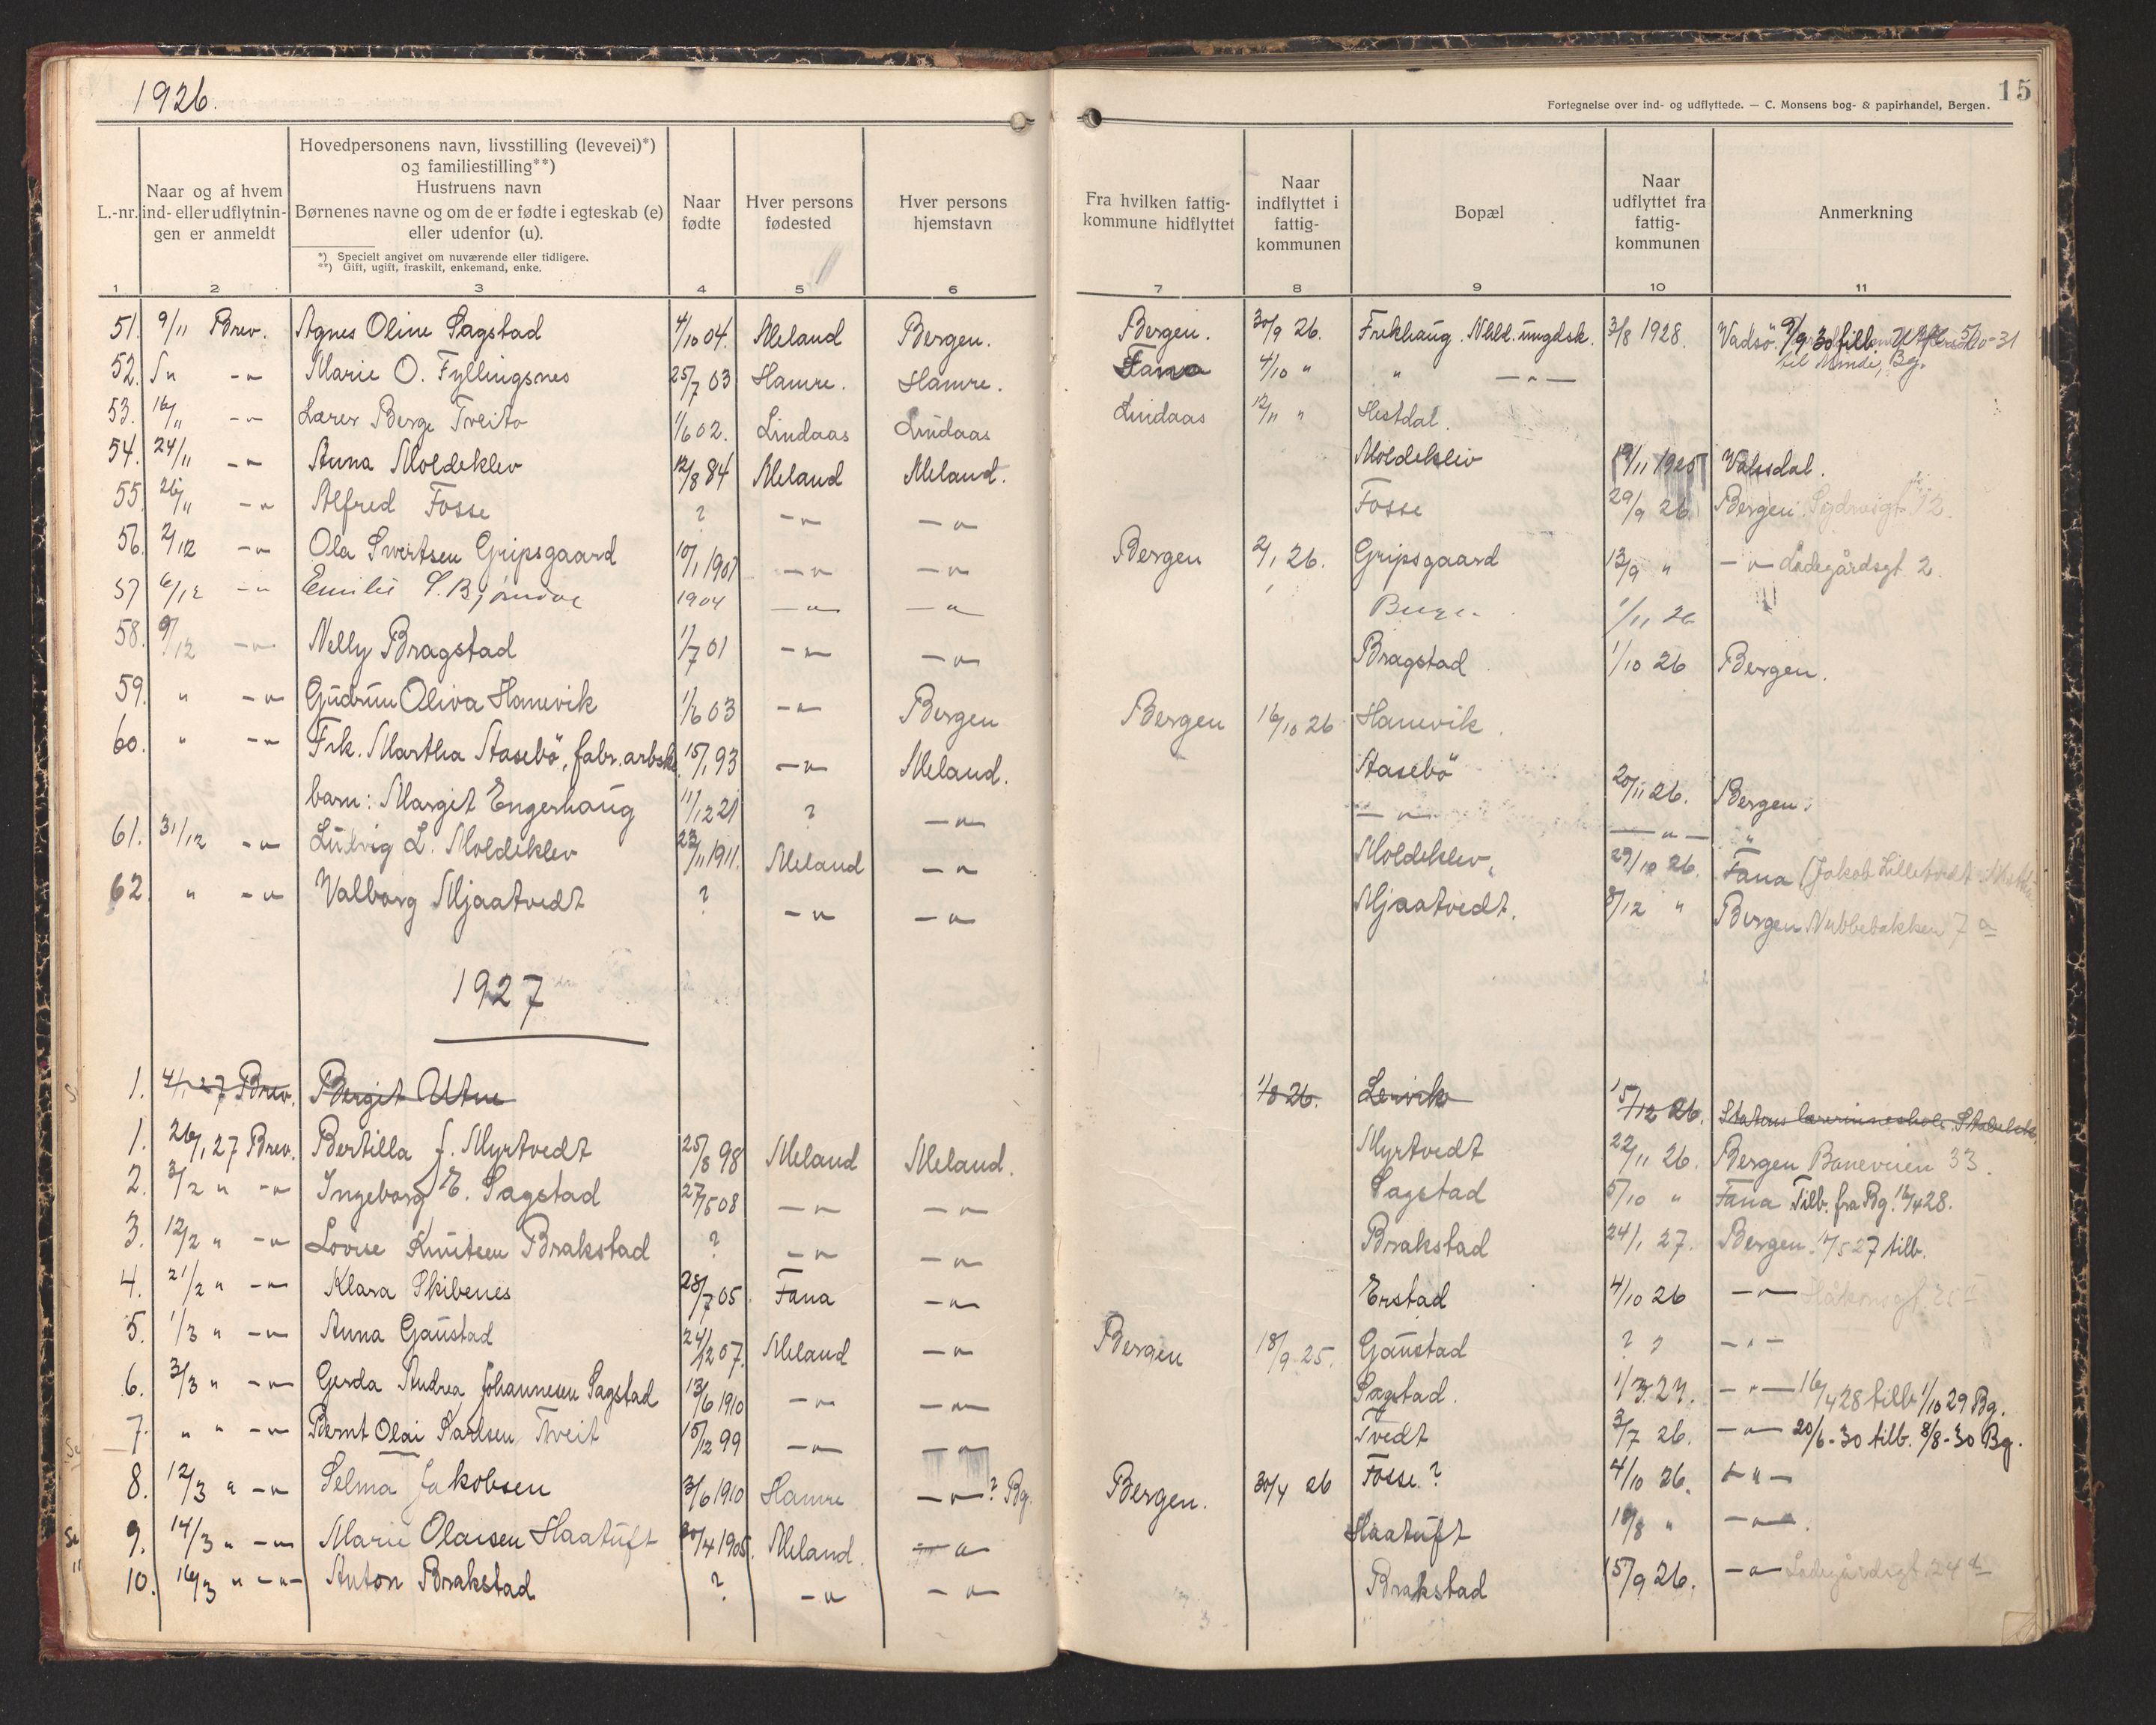 1926.
15
Fortegnelse over ind- og udflyttede. — C. Monsens bog- & papirhandel, Bergen.
L.-nr.
Naar og af hvem ind- eller udflytnin-gen er anmeldt
Hovedpersonens navn, livsstilling (levevei)*)
og familiestilling**)
Hustruens navn
Børnenes navne og om de er fødte i egteskab (e)
eller udenfor (u).
*) Specielt angivet om nuværende eller tidligere.
**) Gift, ugift, fraskilt, enkemand, enke.
Naar fødte
Hver persons fødested
Hver persons hjemstavn
Fra hvilken fattig-kommune hidflyttet
Naar indflyttet i fattig-kommunen
Bopæl
Naar udflyttet fra fattig-kommunen
Anmerkning
1 2 3 4 5 6 7 8 9 10 11
51. 9/11 Brev. Agnes Oline Sagstad 4/10 04. Meland Bergen. Bergen. 30/9 26. Frekhaug. Nhld. ungdsk. 3/8 1928. Vadsö. 9/9 30 tilb.
til Minde, Bg.
52. -"- Marie O. Fyllingsnes 25/7 03 Hamre. Hamre. Fana 4/10 " " -"-
53. 16/11 -"- Lærer Berge Tveito 1/6 02. Lindaas Lindaas Lindaas 12/11 " Hestdal.
54. 24/11 -"- Anna Moldeklev 12/8 84 Meland Meland. Moldeklev 19/11 1925 Vaksdal.
55. 26/11 -"- Alfred Fosse ? -"- -"- Fosse 29/9 26. Bergen.
56. 2/12 -"- Ola Sivertsen Gripsgaard 10/1 1907 -"- -"- Bergen 2/1 26. Gripsgaard 13/9 " -"- Ladegårdsgt 2.
57 6/12 -"- Emilie S. 1904 -"- -"- 1/11 26
58. 9/12 -"- Nelly Bragstad 1/7 01 -"- -"- Bragstad 1/10 26 Bergen.
59. " -"- Gudrun Oliva Hanevik 1/6 03 -"- Bergen Bergen 16/10 26 Hanevik.
60. " -"- Frk. Martha Aasebö, fabr.arbsk. 15/1 93 -"- Meland. Aasebö 20/11 26. Bergen.
barn: Margit Engerhaug 11/12 21 ? -"- -"- -"- "
61. 31/12 -"- Ludvig L. Moldeklev 23/11 1911. Meland -"- Moldeklev. 29/10 26. Fana (Jakob Lilletvedt
62. " -"- Valborg Mjaatvedt ? -"- -"- Mjaatvedt. 8/12 " Bergen Nubbebakken 7 a
1927
1. 4/1 27 Brev. Bergit Utne 1/8 26. Lervik 15/12 26. Statens lærerinneskole. Stabekk.
1. 26/1 27 Brev. Bertilla J. Myrtvedt 25/8 98 Meland Meland. Myrtvedt 22/11 26. Bergen Baneveien 33.
2. 3/2 " -"- Ingeborg E. Sagstad 27/5 08 -"- -"- Sagstad 5/10 " Fana Tilb. fra Bg. 16/4 28.
3. 12/2 " -"- Lovise Knutsen Brakstad ? -"- -"- Brakstad 24/1 27. Bergen. 1/5 27 tilb.
4. 21/2 " -"- Klara Skibenes 28/7 05 Fana -"- Erstad 4/10 26 -"-
5. 1/3 " -"- Anna Gaustad 24/12 07. Meland -"- Bergen 18/9 25. Gaustad ? ? -"-
6. 3/3 " -"- Gerda Andrea Johannesen Sagstad 13/6 1910 -"- -"- Sagstad. 1/3 27. -"- 16/4 28 tilb. 1/10 29 Bg.
7. " " -"- Bernt Olai Karlsen Tveit 15/12 99 -"- -"- Tvedt 3/7 26. -"- 20/6-30 tilb. 8/8-30 Bg.
8. 12/3 " -"- Selma Jakobsen 3/6 1910 Hamre -"- ? Bg. Bergen. 30/4 26 Fosse ? 4/10 26. -"-
9. 14/3 " -"- Marie Olaisen Haatuft 30/4 1905. Meland. -"- Haatuft 18/8 " -"-.
10. 16/3 " -"- Anton Brakstad ? -"- -"- Brakstad 15/9 26. -"- Ladegårdsgt. 24 a